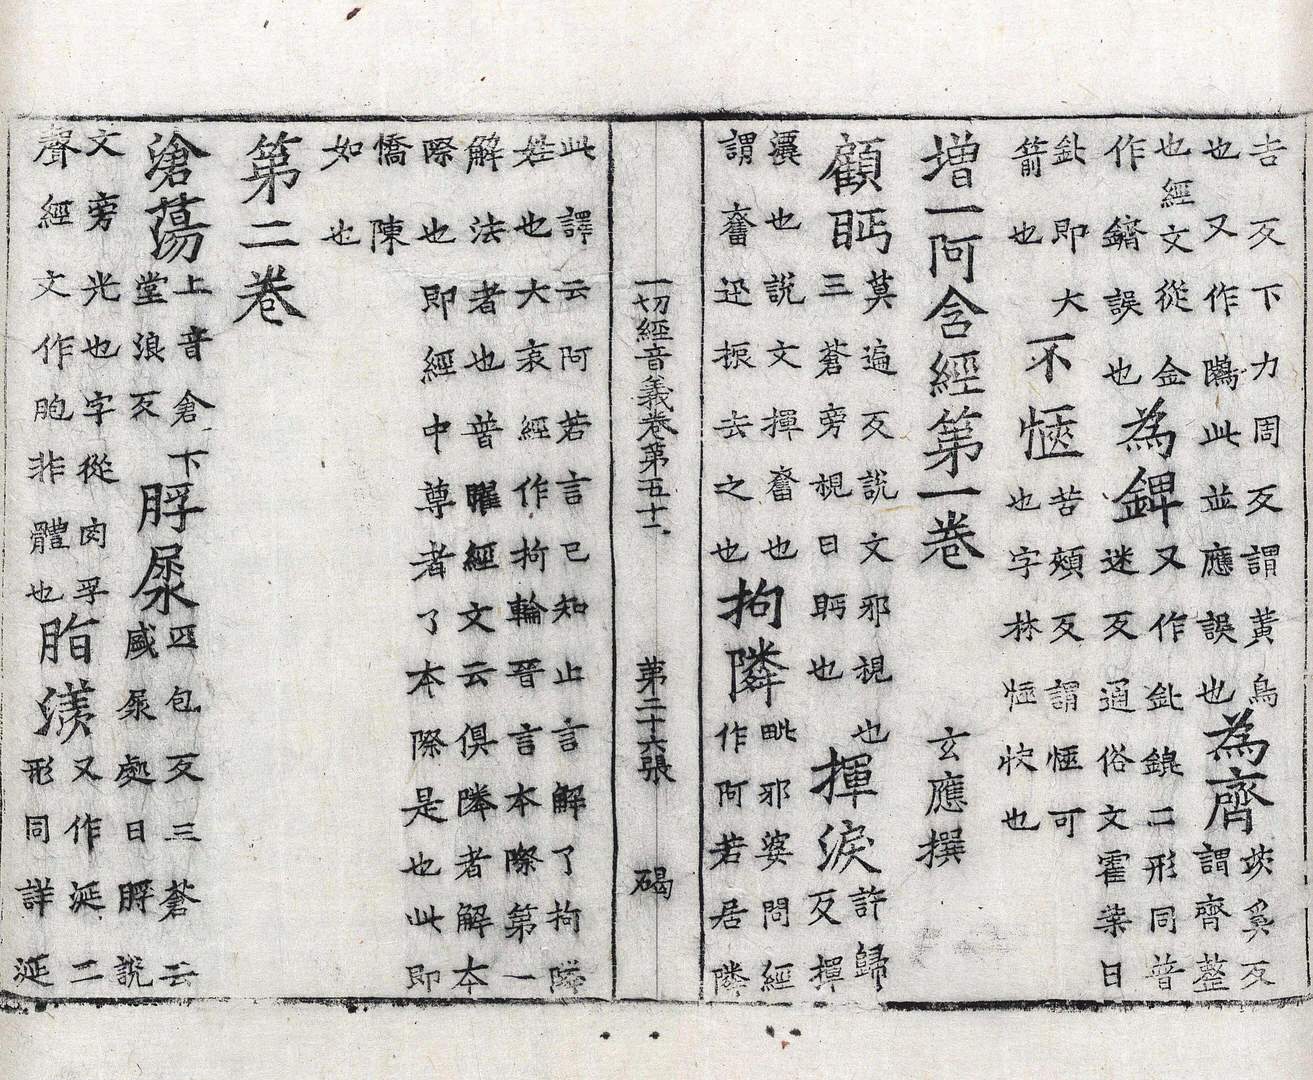 反下力周反謂黃鳥
也又作鶹此並應誤也
為齊
奚反
謂齊整
也經文從金
作鑇誤也
為錍
又作鈚鎞二形同普
迷反通俗文霍葉曰
鈚即大
箭也
不愜
苦頰反謂愜可
也字林愜快也
增一阿含經第一卷 玄應撰
顧眄
莫遍反說文邪視也
三蒼旁視曰眄也
揮淚
許歸
反揮
也說文揮奮也
謂奮迅振去之也
拘隣
毗邪婆問經
作阿若居隣
一切經音義卷第五十二 第二十六張 碣
此譯云阿若言已知止言解了拘隣
姓也大哀經作拘輪晉言本際第一
解法者也普曜經文云俱隣者解本
際也即經中尊者了本際是也此即
憍陳
如也
第二卷
滄蕩
上音倉下
堂浪反
脬尿
匹包反三蒼云
盛尿處曰脬說
文旁光也字從肉孚
聲經文作胞非體也
脂㳄
又作涎二
形同詳延